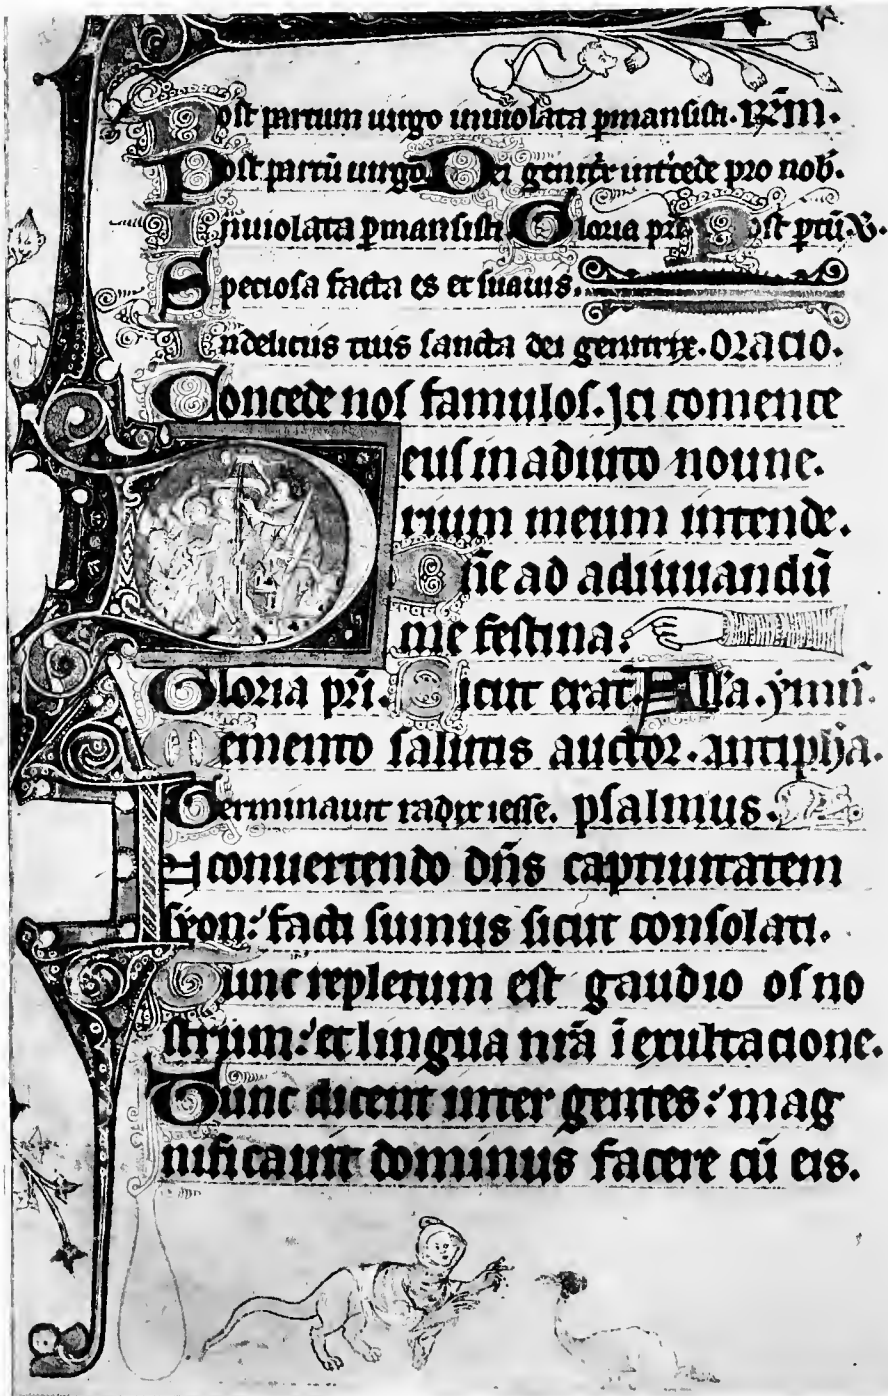 Post partum uirgo inuiolata p̲mansisti. R̃M.
Post partū uirgo. Dei genit͛x int͛cede pro nob̄.
Inuiolata p̲mansisti. Gloria pr̄i. Post ptū. V.
Speciosa facta es et suauis.
Indeliciis tuis sancta dei genitrix. Oracio.
Concede nos famulos. Ici comence
Deus in adiuto noune.
rium meum intende.
Dn̄e ad adiuuandū
me festina.
Gloria pr̄i. Sicut erat. All'a. ymn̄.
Memento salutis auctor. antiph̄a.
Germinauit radix iesse. psalmus.
In conuertendo dn̄s captiuitatem
syon: facti sumus sicut consolati.
Tunc repletum est gaudio os no
strum: et lingua nr̄a ī exultacione.
Tunc dicent inter gentes: mag
nificauit dominus facere cū eis.